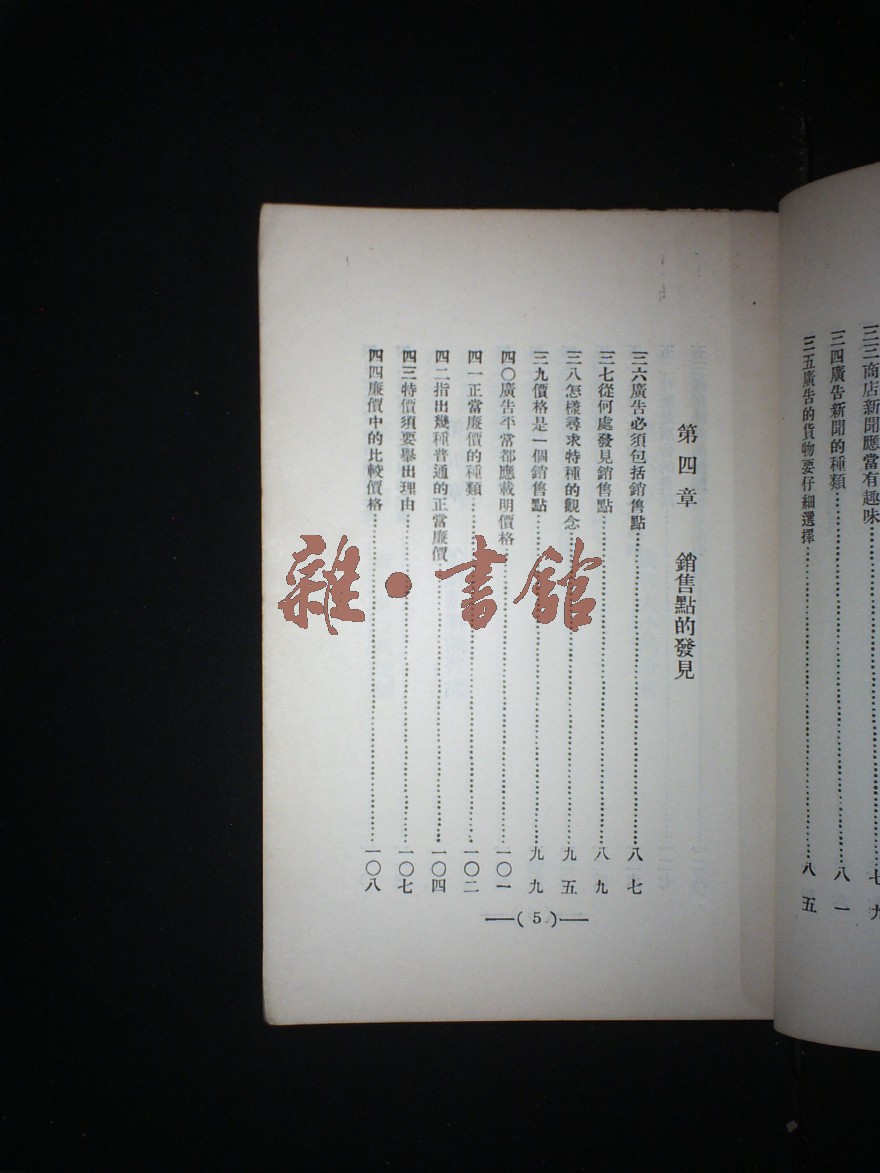 三三商店新聞應當有趣味……七九
三四廣告新聞的種類……八一
三五廣告的貨物要仔細選擇……八五
第四章 銷售點的發見
三六廣告必須包括銷售點……八七
三七從何處發見銷售點……八九
三八怎樣尋求特種的觀念……九五
三九價格是一個銷售點……九九
四〇廣告平常都應載明價格……一〇一
四一正當廉價的種類……一〇二
四二指出幾種普通的正當廉價……一〇四
四三特價須要舉出理由……一〇七
四四廉價中的比較價格……一〇八
—( 5 )—
雜·書館